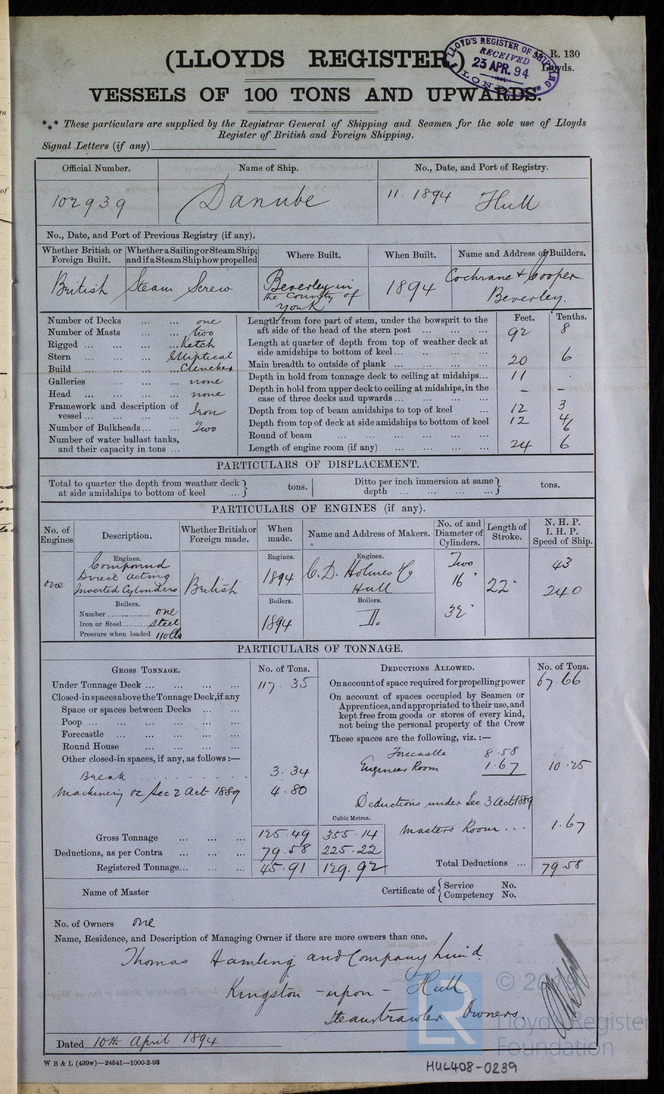 (LLOYDS REGISTER.)
R. 130
Lloyds.
LLOYD'S REGISTER OF SHIPPING
RECEIVED
23 APR. 94
LONDON
VESSELS OF 100 TONS AND UPWARDS.
*** These particulars are supplied by the Registrar General of Shipping and Seamen for the sole use of Lloyds
Register of British and Foreign Shipping.
Signal Letters (if any)
Official Number. Name of Ship. No., Date, and Port of Registry.
102939 Danube 11. 1894 Hull
No., Date, and Port of Previous Registry (if any).
Whether British or Foreign Built. Whether a Sailing or Steam Ship; and if a Steam Ship how propelled Where Built. When Built. Name and Address of Builders.
British Steam Screw Beverley in the County of York 1894 Cochrane & Cooper Beverley.
Number of Decks ... ... one
Number of Masts ... ... two
Rigged ... ... ... Ketch
Stern ... ... ... Elliptical
Build ... ... ... Clencher
Galleries ... ... none
Head ... ... ... none
Framework and description of vessel ... ... ... Iron
Number of Bulkheads ... ... Two
Number of water ballast tanks, and their capacity in tons ...
Feet. Tenths.
Length from fore part of stem, under the bowsprit to the aft side of the head of the stern post ... ... ... 92 8
Length at quarter of depth from top of weather deck at side amidships to bottom of keel ... ... ... ...
Main breadth to outside of plank ... ... ... ... 20 6
Depth in hold from tonnage deck to ceiling at midships... 11 -
Depth in hold from upper deck to ceiling at midships, in the case of three decks and upwards ... ... ... ... - -
Depth from top of beam amidships to top of keel ... 12 3
Depth from top of deck at side amidships to bottom of keel 12 4
Round of beam ... ... ... ... ... 6
Length of engine room (if any) ... ... ... ... 24 6
PARTICULARS OF DISPLACEMENT.
Total to quarter the depth from weather deck at side amidships to bottom of keel ... tons. Ditto per inch immersion at same depth ... ... ... ... tons.
PARTICULARS OF ENGINES (if any).
No. of Engines Description. Whether British or Foreign made. When made. Name and Address of Makers. No. of and Diameter of Cylinders. Length of Stroke. N. H. P. I. H. P. Speed of Ship.
Engines. Engines. Engines.
one Compound Direct Acting Inverted Cylinders British 1894 C. D. Holmes & Co Hull Two 16" 32" 22" 43 240
Boilers. Boilers. Boilers.
Number one
Iron or Steel steel 1894
Pressure when loaded 110 lbs
PARTICULARS OF TONNAGE.
GROSS TONNAGE. No. of Tons.
Under Tonnage Deck ... ... ... ... 117.35
Closed-in spaces above the Tonnage Deck, if any
Space or spaces between Decks ... ...
Poop ... ... ... ... ... ...
Forecastle ... ... ... ... ...
Round House ... ... ... ...
Other closed-in spaces, if any, as follows:—
Break 3.34
Machinery Sec 2 Act 1889 4.80
Cubic Metres.
Gross Tonnage ... ... 125.49 355.14
Deductions, as per Contra ... ... ... 79.58 225.22
Registered Tonnage... ... ... 45.91 129.92
DEDUCTIONS ALLOWED. No. of Tons.
On account of space required for propelling power 67.66
On account of spaces occupied by Seamen or Apprentices, and appropriated to their use, and kept free from goods or stores of every kind, not being the personal property of the Crew
These spaces are the following, viz.:—
Forecastle 8.58
Engineers Room 1.67 10.25
Deductions under Sec 3 Act 1889
Masters Room ... 1.67
Total Deductions ... 79.58
Name of Master Certificate of { Service No. Competency No.
No. of Owners one
Name, Residence, and Description of Managing Owner if there are more owners than one.
Thomas Hamling and Company Limd.
Kingston-upon-Hull
Steamtrawler Owners.
Dated 10th April 1894
W B & L (439w)—24541—1000-2-93
HUL408-0239
Lloyd's Register
Foundation